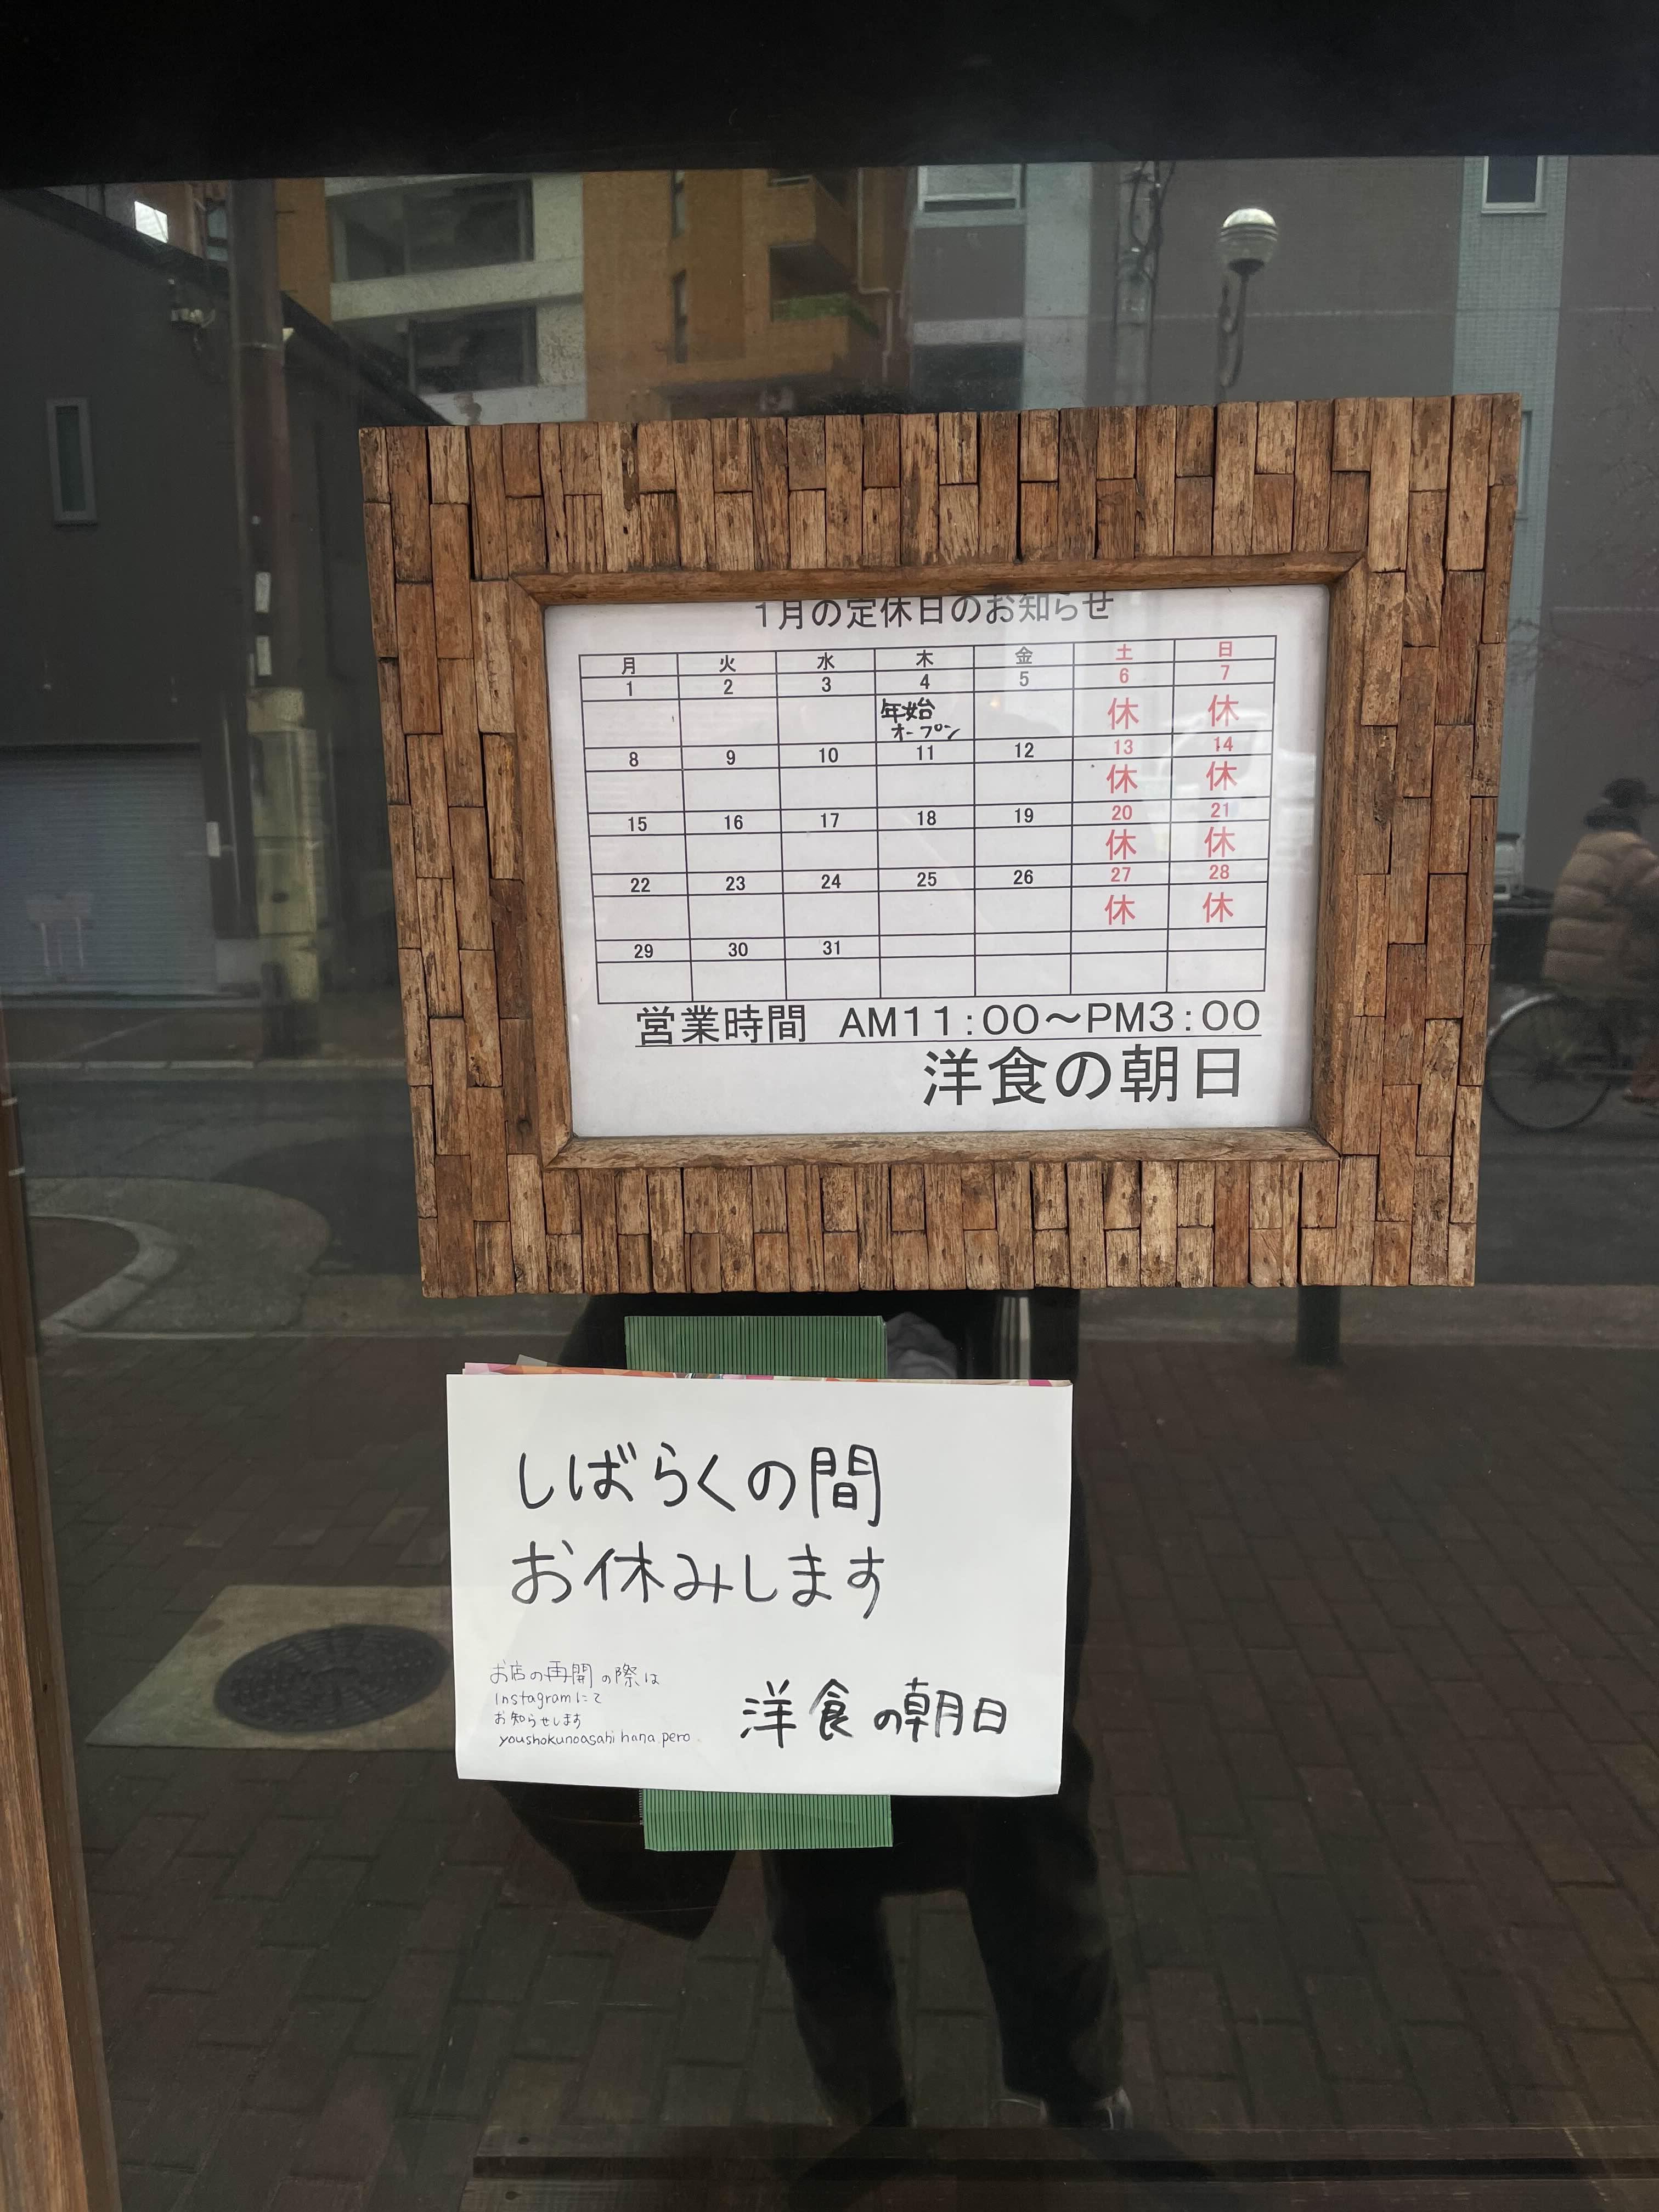 1月の定休日のお知らせ
月 火 水 木 金 土 日
1 2 3 4 5 6 7
年始 休 休
オープン
8 9 10 11 12 13 14
休 休
15 16 17 18 19 20 21
休 休
22 23 24 25 26 27 28
休 休
29 30 31
営業時間 AM11:00～PM3:00
洋食の朝日
しばらくの間
お休みします
お店の再開の際は
Instagramにて
お知らせします
youshokunoasahi hana.pero
洋食の朝日